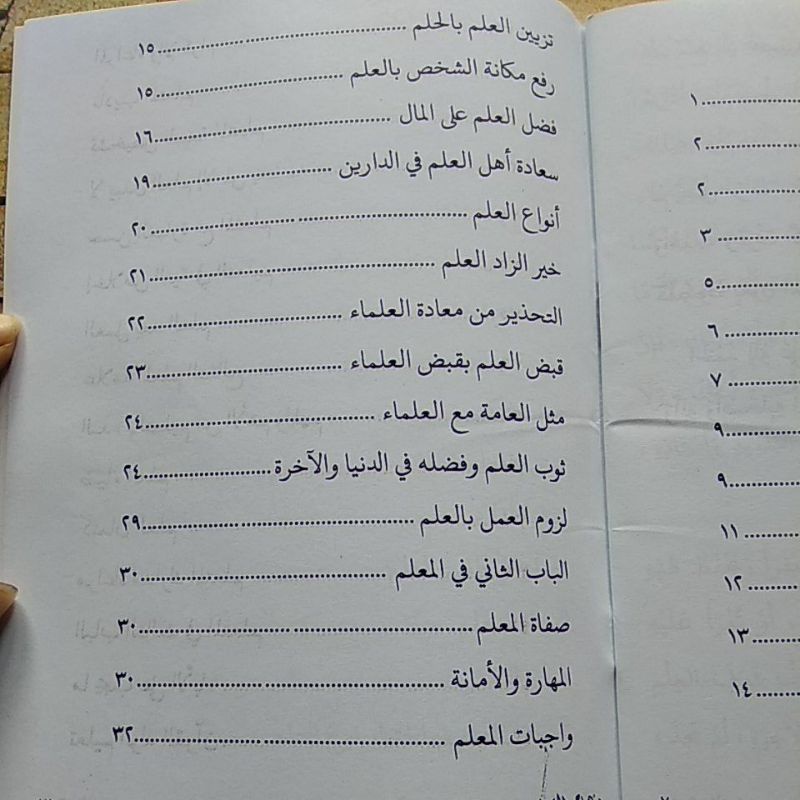 تزيين العلم بالحلم ........ ١٥
رفع مكانة الشخص بالعلم ........ ١٥
فضل العلم على المال ........ ١٦
سعادة أهل العلم في الدارين ........ ١٩
أنواع العلم ........ ٢٠
خير الزاد العلم ........ ٢١
التحذير من معادة العلماء ........ ٢٢
قبض العلم بقبض العلماء ........ ٢٣
مثل العامة مع العلماء ........ ٢٤
ثوب العلم وفضله في الدنيا والآخرة ........ ٢٤
لزوم العمل بالعلم ........ ٢٩
الباب الثاني في المعلم ........ ٣٠
صفاة المعلم ........ ٣٠
المهارة والأمانة ........ ٣٠
واجبات المعلم ........ ٣٢
١ ........
٢ ........
٢ ........
٣ ........
٥ ........
٦ ........
٧ ........
٩ ........
٩ ........
١١ ........
١٢ ........
١٣ ........
١٤ ........